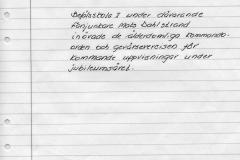 Befälsskola I under dåvarande
Fanjunkare Mats Dahlstrand
inövade de ålderdomliga kommando-
orden och gevärsexercisen för
kommande uppvisningar under
jubileumsåret.